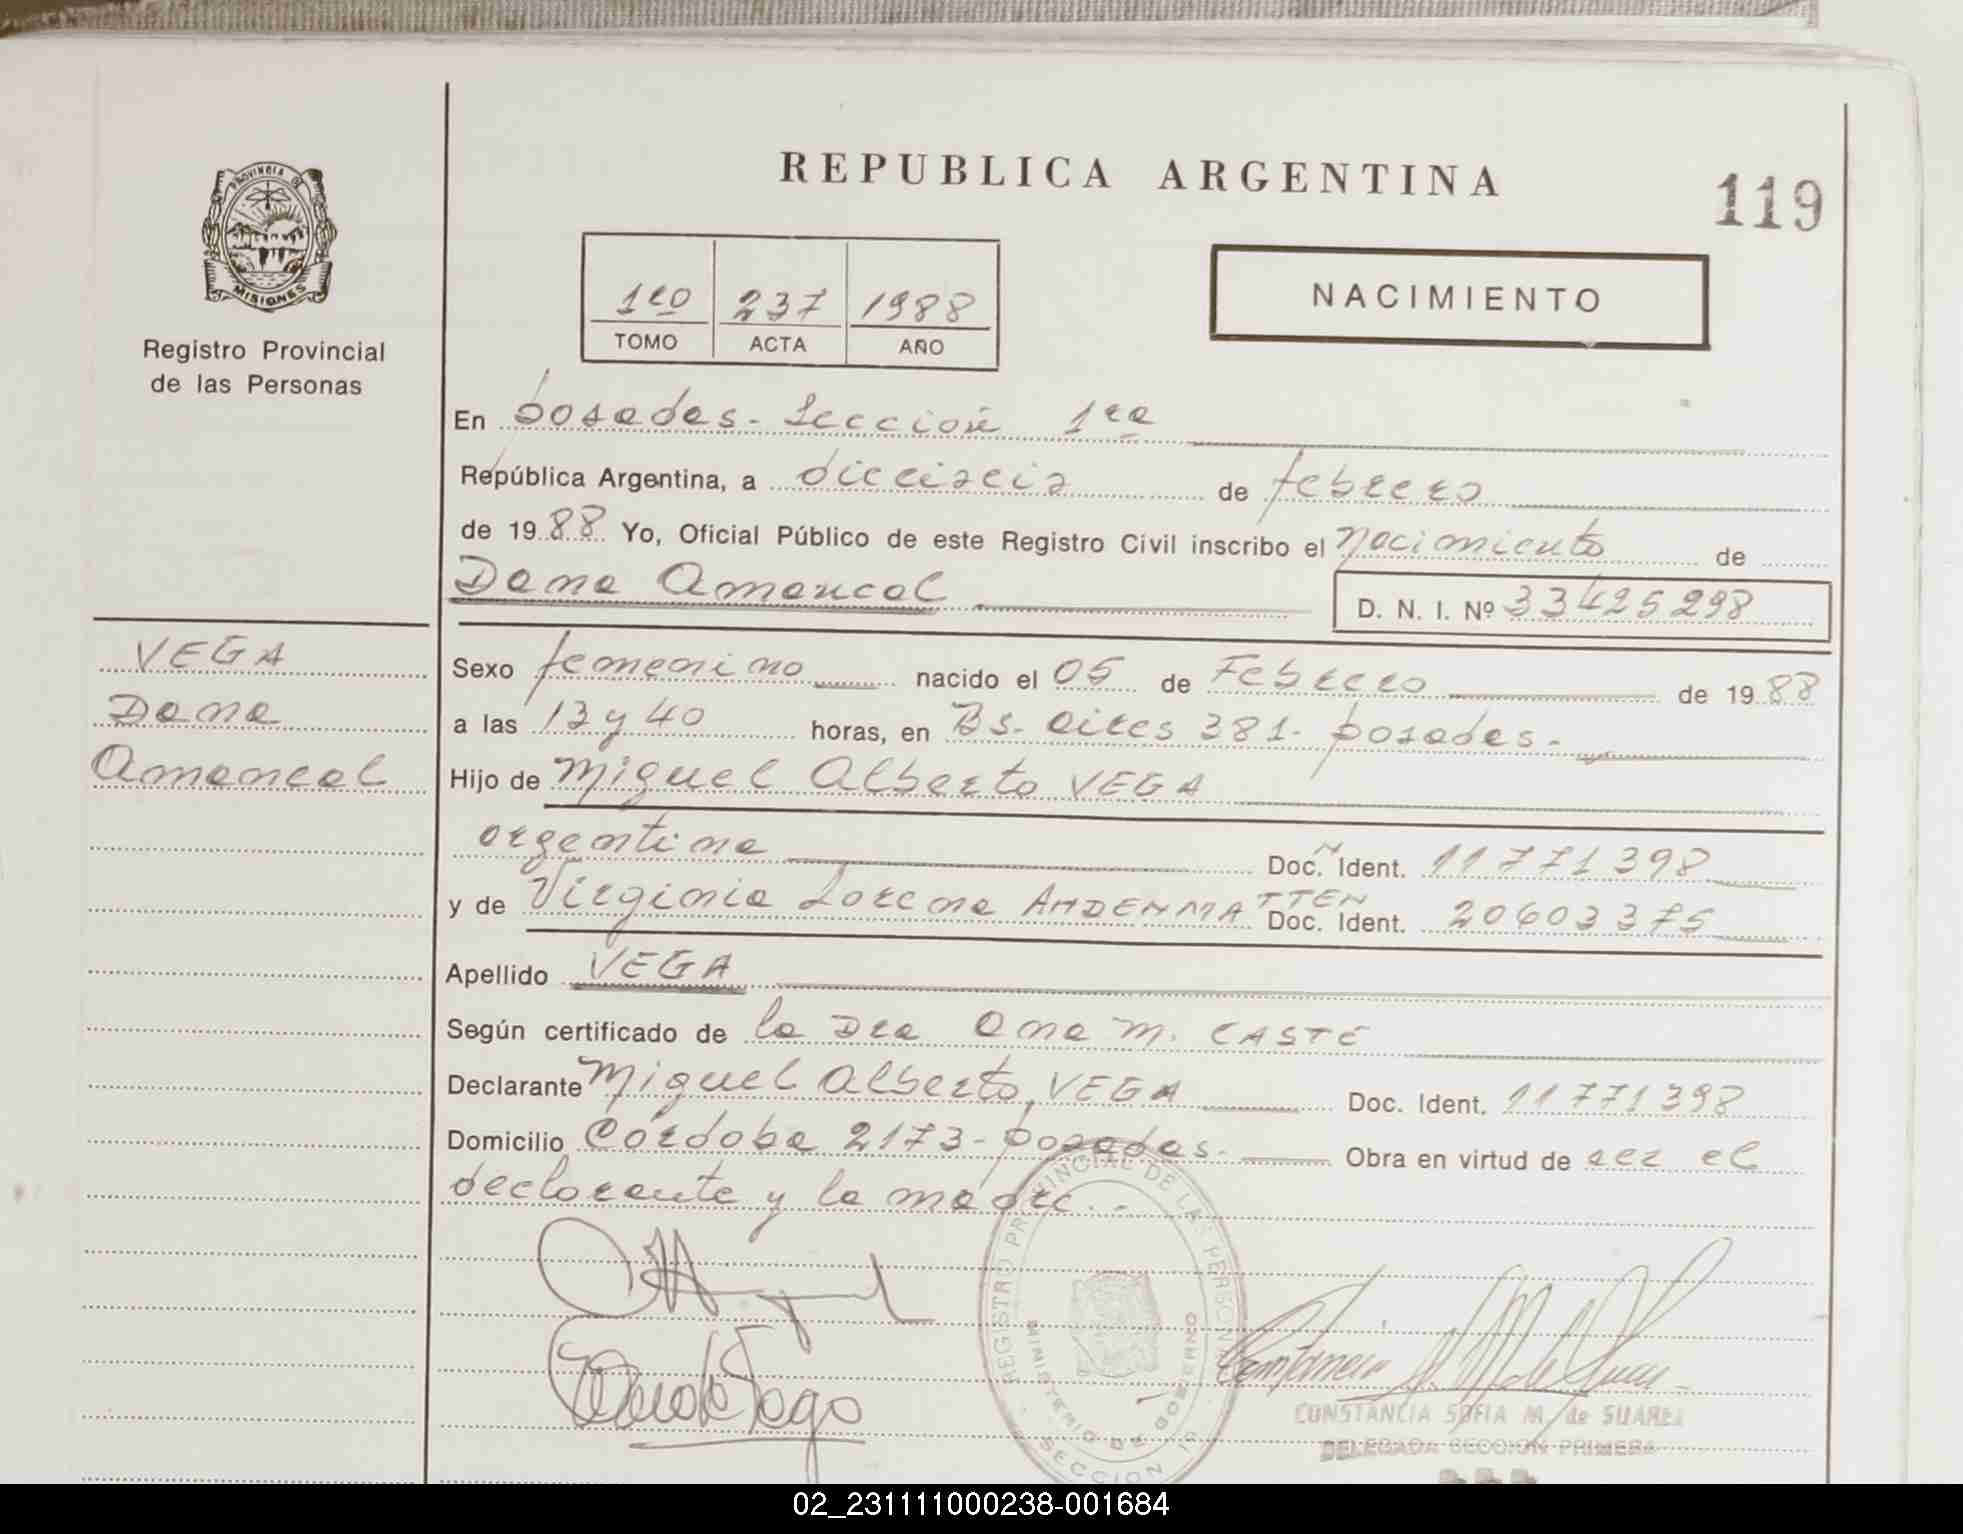 REPUBLICA ARGENTINA
119
PROVINCIA DE
MISIONES
Registro Provincial
de las Personas
1ro 237 1988
TOMO ACTA AÑO
NACIMIENTO
En Posadas - Sección 1ra
República Argentina, a dieciseis de febrero
de 1988 Yo, Oficial Público de este Registro Civil inscribo el nacimiento de
Dana Amancal
D. N. I. Nº 33425298
VEGA
Dana
Amancal
Sexo femenino nacido el 05 de Febrero de 1988
a las 13 y 40 horas, en Bs. aires 381 - Posadas -
Hijo de Miguel Alberto VEGA
argentina Doc. Ident. 11771398
y de Virginia Lorena ANDENMATTEN Doc. Ident. 20603375
Apellido VEGA
Según certificado de la Dra Ana M. CASTE
Declarante Miguel Alberto VEGA Doc. Ident. 11771398
Domicilio Córdoba 2173 - Posadas - Obra en virtud de ser el
declarante y la madre. -
REGISTRO PROVINCIAL DE LAS PERSONAS
MINISTERIO DE GOBIERNO
SECCION
CONSTANCIA SOFIA M. de SUAREZ
DELEGADA SECCION PRIMERA
02_231111000238-001684